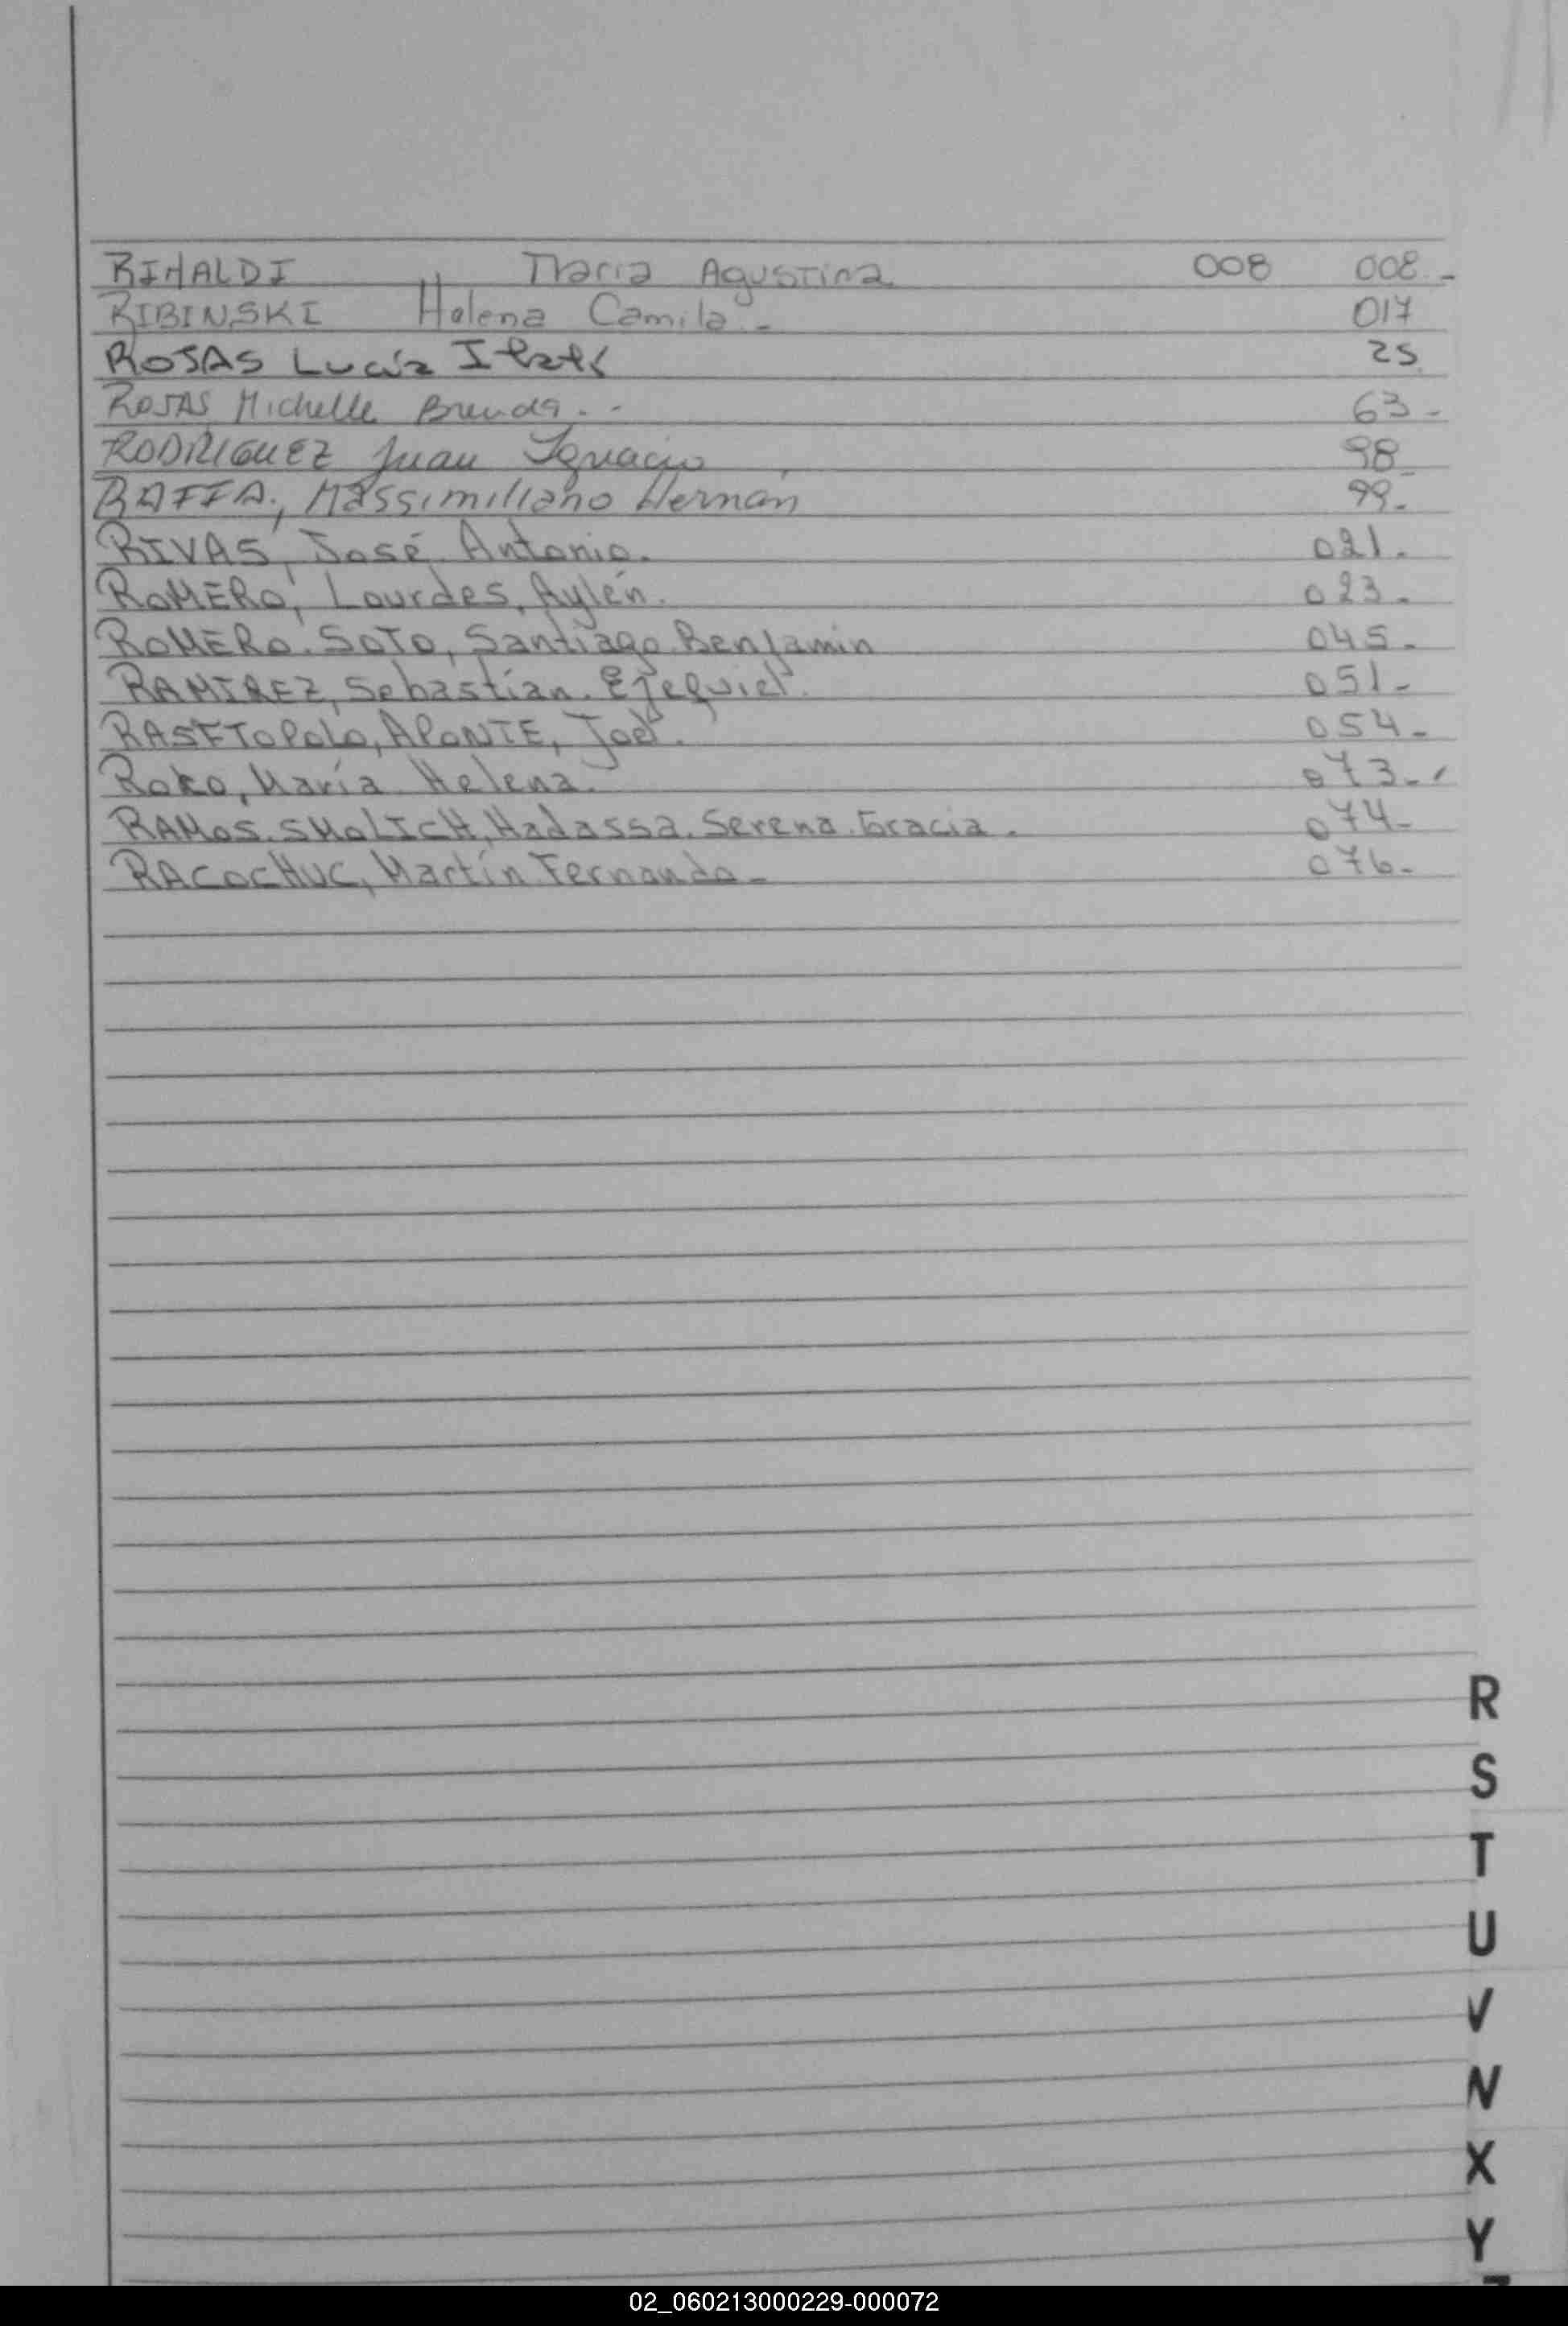 RINALDI Maria Agustina 008 008.-
RIBINSKI Helena Camila.- 017
ROJAS Lucía Itatí 25
ROJAS Michelle Brenda.- 63-
RODRIGUEZ Juan Ignacio 98
RAFFA, Massimiliano Hernán 99-
RIVAS, José Antonio. 021.
ROMERO, Lourdes, Aylén. 023-
ROMERO. SOTO, Santiago Benjamin 045-
RAMIREZ, Sebastían. Ezequiel. 051-
RASFTOPOLO, APONTE, Joel. 054-
ROKO, María Helena. 073-
RAMOS. SMOLICH, Hadassa. Serena. Gracia. 074-
RACOCHUC, Martín Fernando- 076-
R
S
T
U
V
X
Y
02_060213000229-000072